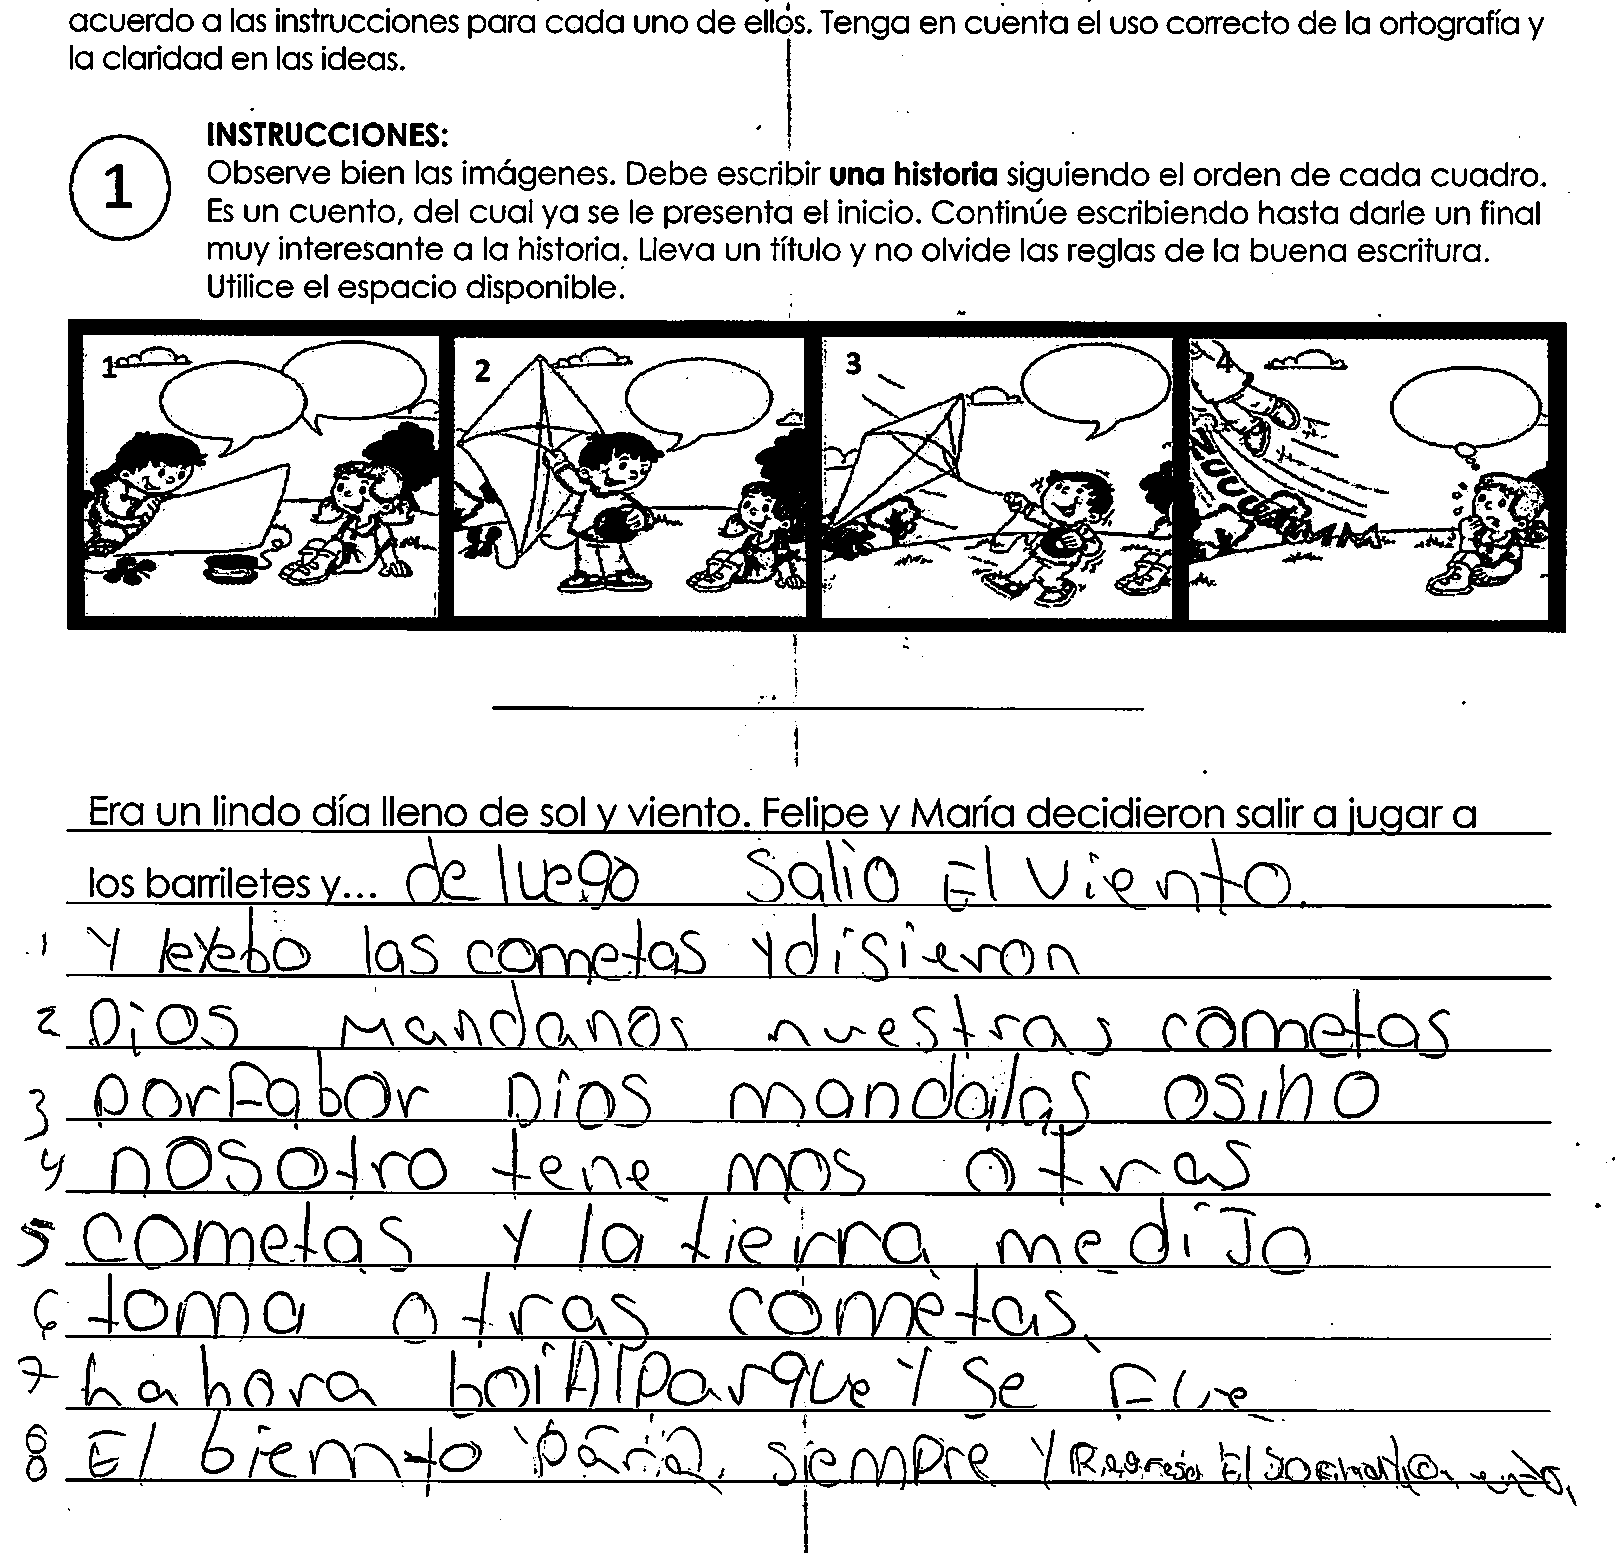 acuerdo a las instrucciones para cada uno de ellos. Tenga en cuenta el uso correcto de la ortografía y
la claridad en las ideas.
1
INSTRUCCIONES:
Observe bien las imágenes. Debe escribir una historia siguiendo el orden de cada cuadro.
Es un cuento, del cual ya se le presenta el inicio. Continúe escribiendo hasta darle un final
muy interesante a la historia. Lleva un título y no olvide las reglas de la buena escritura.
Utilice el espacio disponible.
1 2 3 4
Era un lindo día lleno de sol y viento. Felipe y María decidieron salir a jugar a
los barriletes y... de luego salio El viento.
1 Y las cometas y disieron
2 Dios mandanos nuestras cometas
3 porfabor Dios mandalas osino
4 nosotro tene mos otras
5 cometas y la tierra me diJo
6 toma otras cometas.
7 hahora boi Al parque y se Fue
8 El biemto para siempre y Regreso El